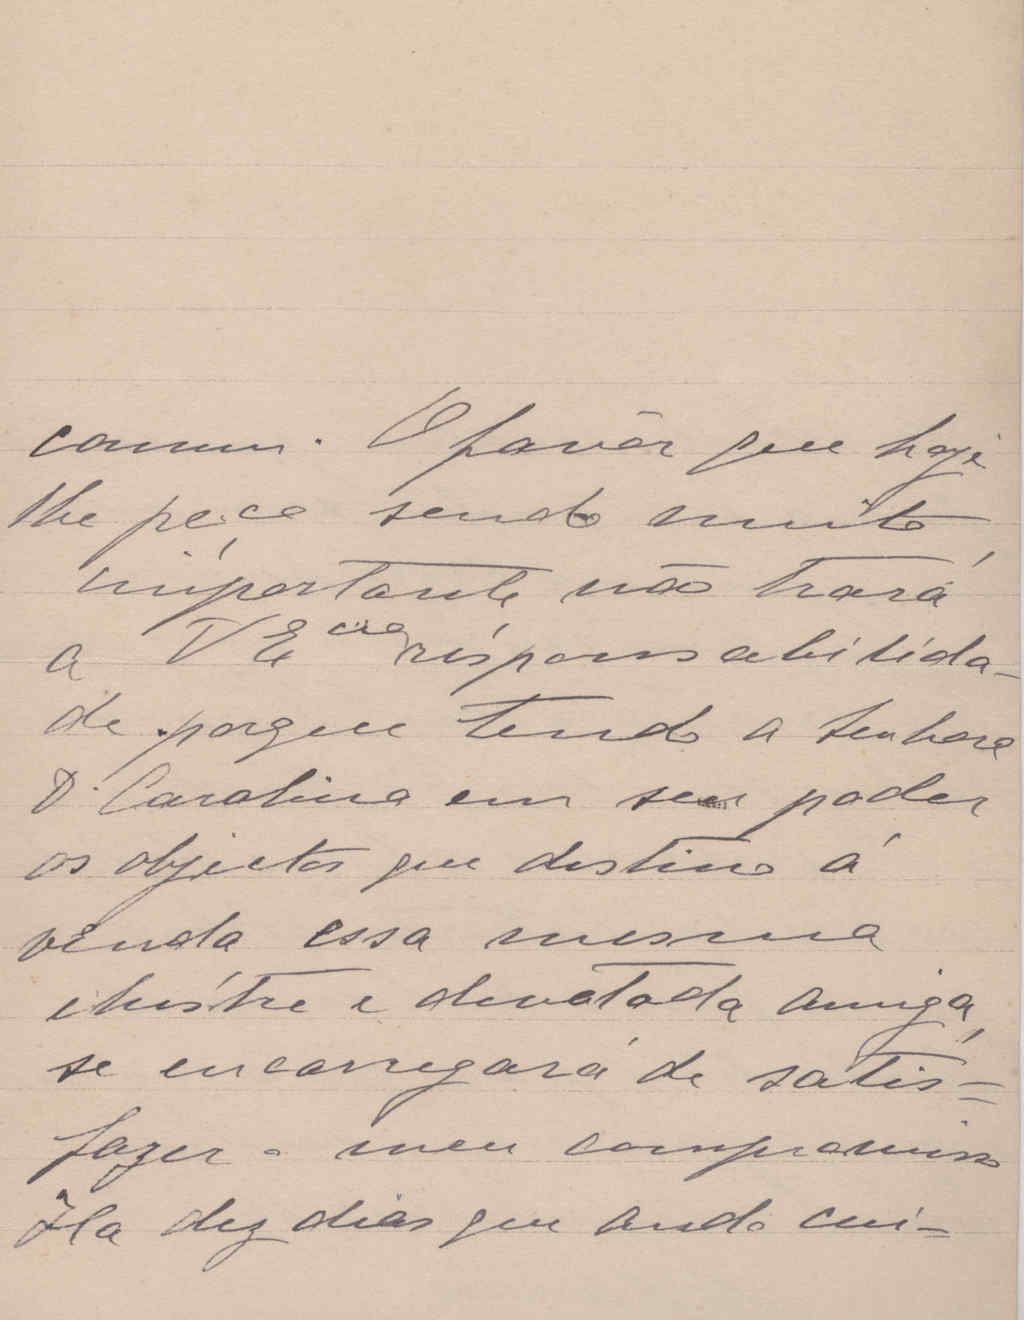 comum. O favôr que hoje
lhe peço sendo muito
importante não trará
a V Ecia responsabilida-
de porque tendo a senhora
D. Carolina em seu poder
os objectos que destino á
venda essa mesma
illustre e devotada amiga,
se encarregará de satis=
fazer o meu compromisso
Ha dez dias que ando cui=